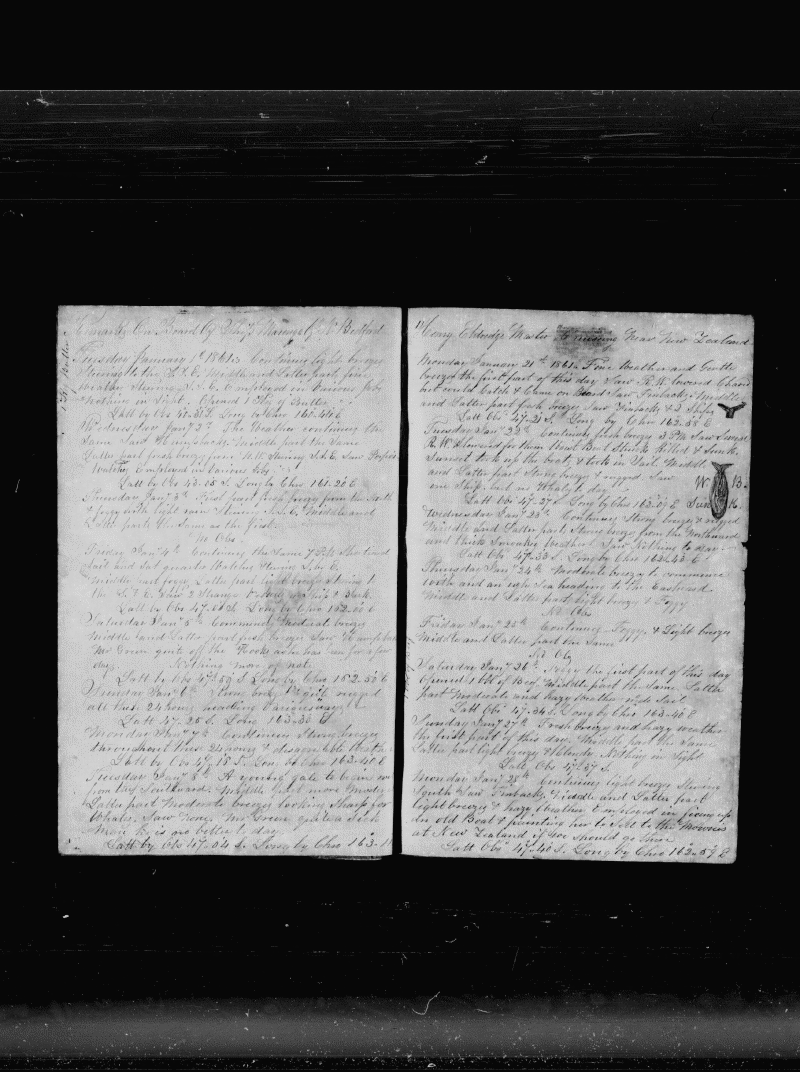 Remarks On Board of Ship of N Bedford
Tuesday January 1st 1861. Continues light breezes
Steering to the S.S.E. Middle and Latter part fine
weather Steering S.S.E. Employed in Various Jobs
Nothing in Sight. Opened 1 of Butter
Latt by Obs S. Long by Chro E
Wednesday Jany 2nd The Weather continues the
Same Saw Humpbacks Middle part the Same
Latter part fresh breezes from Steering S.S.E. Saw
Employed in Various Jobs
Latt by Obs S. Long by Chro 161. E
Thursday Jany 3rd First part fresh breezes from the South
& foggy with light rain Steering Middle and
Latter parts the Same as the first
No Obs
Friday Jany 4th Continues the Same 7 PM Shortened
Sail and Set quarter Watches Steering S. by E.
Middle part foggy Latter part light breezes Steering to
the S.S.E. Saw 2 Strange Ship & Bark.
Latt by Obs Long by Chro E
Saturday Jany 5th Commences Moderate breezes
Middle and Latter part fresh breezes Saw Humpbacks
Mr Green quite off the Hooks as he has been for a few
days. Nothing more of note.
Latt by Obs 47.59 S Long by Chro E
Sunday Jany 6th Strong breezes quite rugged
all this 24 hours
Latt 47.25 S. Long E
Monday Jany 7th Continues Strong breezes
throughout these 24 hours & disagreeable Weather
Latt by Obs 47.18 S. Lon. by Chro E
Tuesday Jany 8th A young gale to begin with
from the Southward. Middle part more Moderate
Latter part Moderate breezes looking Sharp for
Whales. Saw None. Mr Green quite a Sick
Man he is no better to day
Latt by Obs 47.04 S. Long by Chro 163.
Henry Eldredge Master Near New Zealand
Monday January 21st 1861. Fine Weather and Gentle
breezes the first part of this day Saw R.W. lowered Chased
but could Catch & Came on Board Saw Finbacks, Middle
and Latter part fresh breezes Saw Finbacks & 2 Ships
Latt Obs 47.21 S. Long by Chro 162.58 E
Tuesday Jany 22nd Continues fresh breezes 3 PM Saw
R.W. & lowered for them Waist Boat Struck Killed & Sunk.
Sunset took up the boats & took in Sail. Middle
and Latter part Strong breezes & rugged Saw
one Ship. but no Whales to day
Latt Obs 47.27 S. Long by Chro E Sunk
Wednesday Jany 23rd Continues Strong breezes & rugged
Middle and Latter part Strong breezes from the Northward
and thick Smoky Weather Saw Nothing to day
Latt Obs 47.33 S. Long by Chro 162.43 E
Thursday Jany 24th Moderate breezes to commence
with and an ugly Sea heading to the Eastward
Middle and Latter part light breezes & Foggy
No Obs
Friday Jany 25th Continues Foggy & Light breezes
Middle and Latter part the Same
No Obs
Saturday Jany 26th Foggy the first part of this day
Opened 1 bbl of Beef Middle part the Same Latter
part Moderate and hazy Weather made Sail
Latt Obs 47.34 S. Long by Chro 163.40 E
Sunday Jany 27th Fresh breezes and hazy weather
the first part of this day Middle part the Same
Latter part light breezes & Clouds Nothing in Sight
Latt Obs 47.37 S.
Monday Jany 28th Continues light breezes Steering
South Saw Finbacks. Middle and Latter part
light breezes & hazy Weather Employed in fixing up
An old Boat & painting her to Sell to the Mowries
at New Zealand if we should go there
Latt Obs 47.40 S. Long by Chro 162.59 E